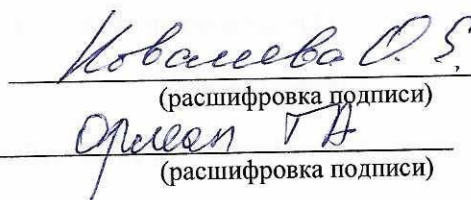 Ковалева О.Е.
(расшифровка подписи)
Орман ГА
(расшифровка подписи)